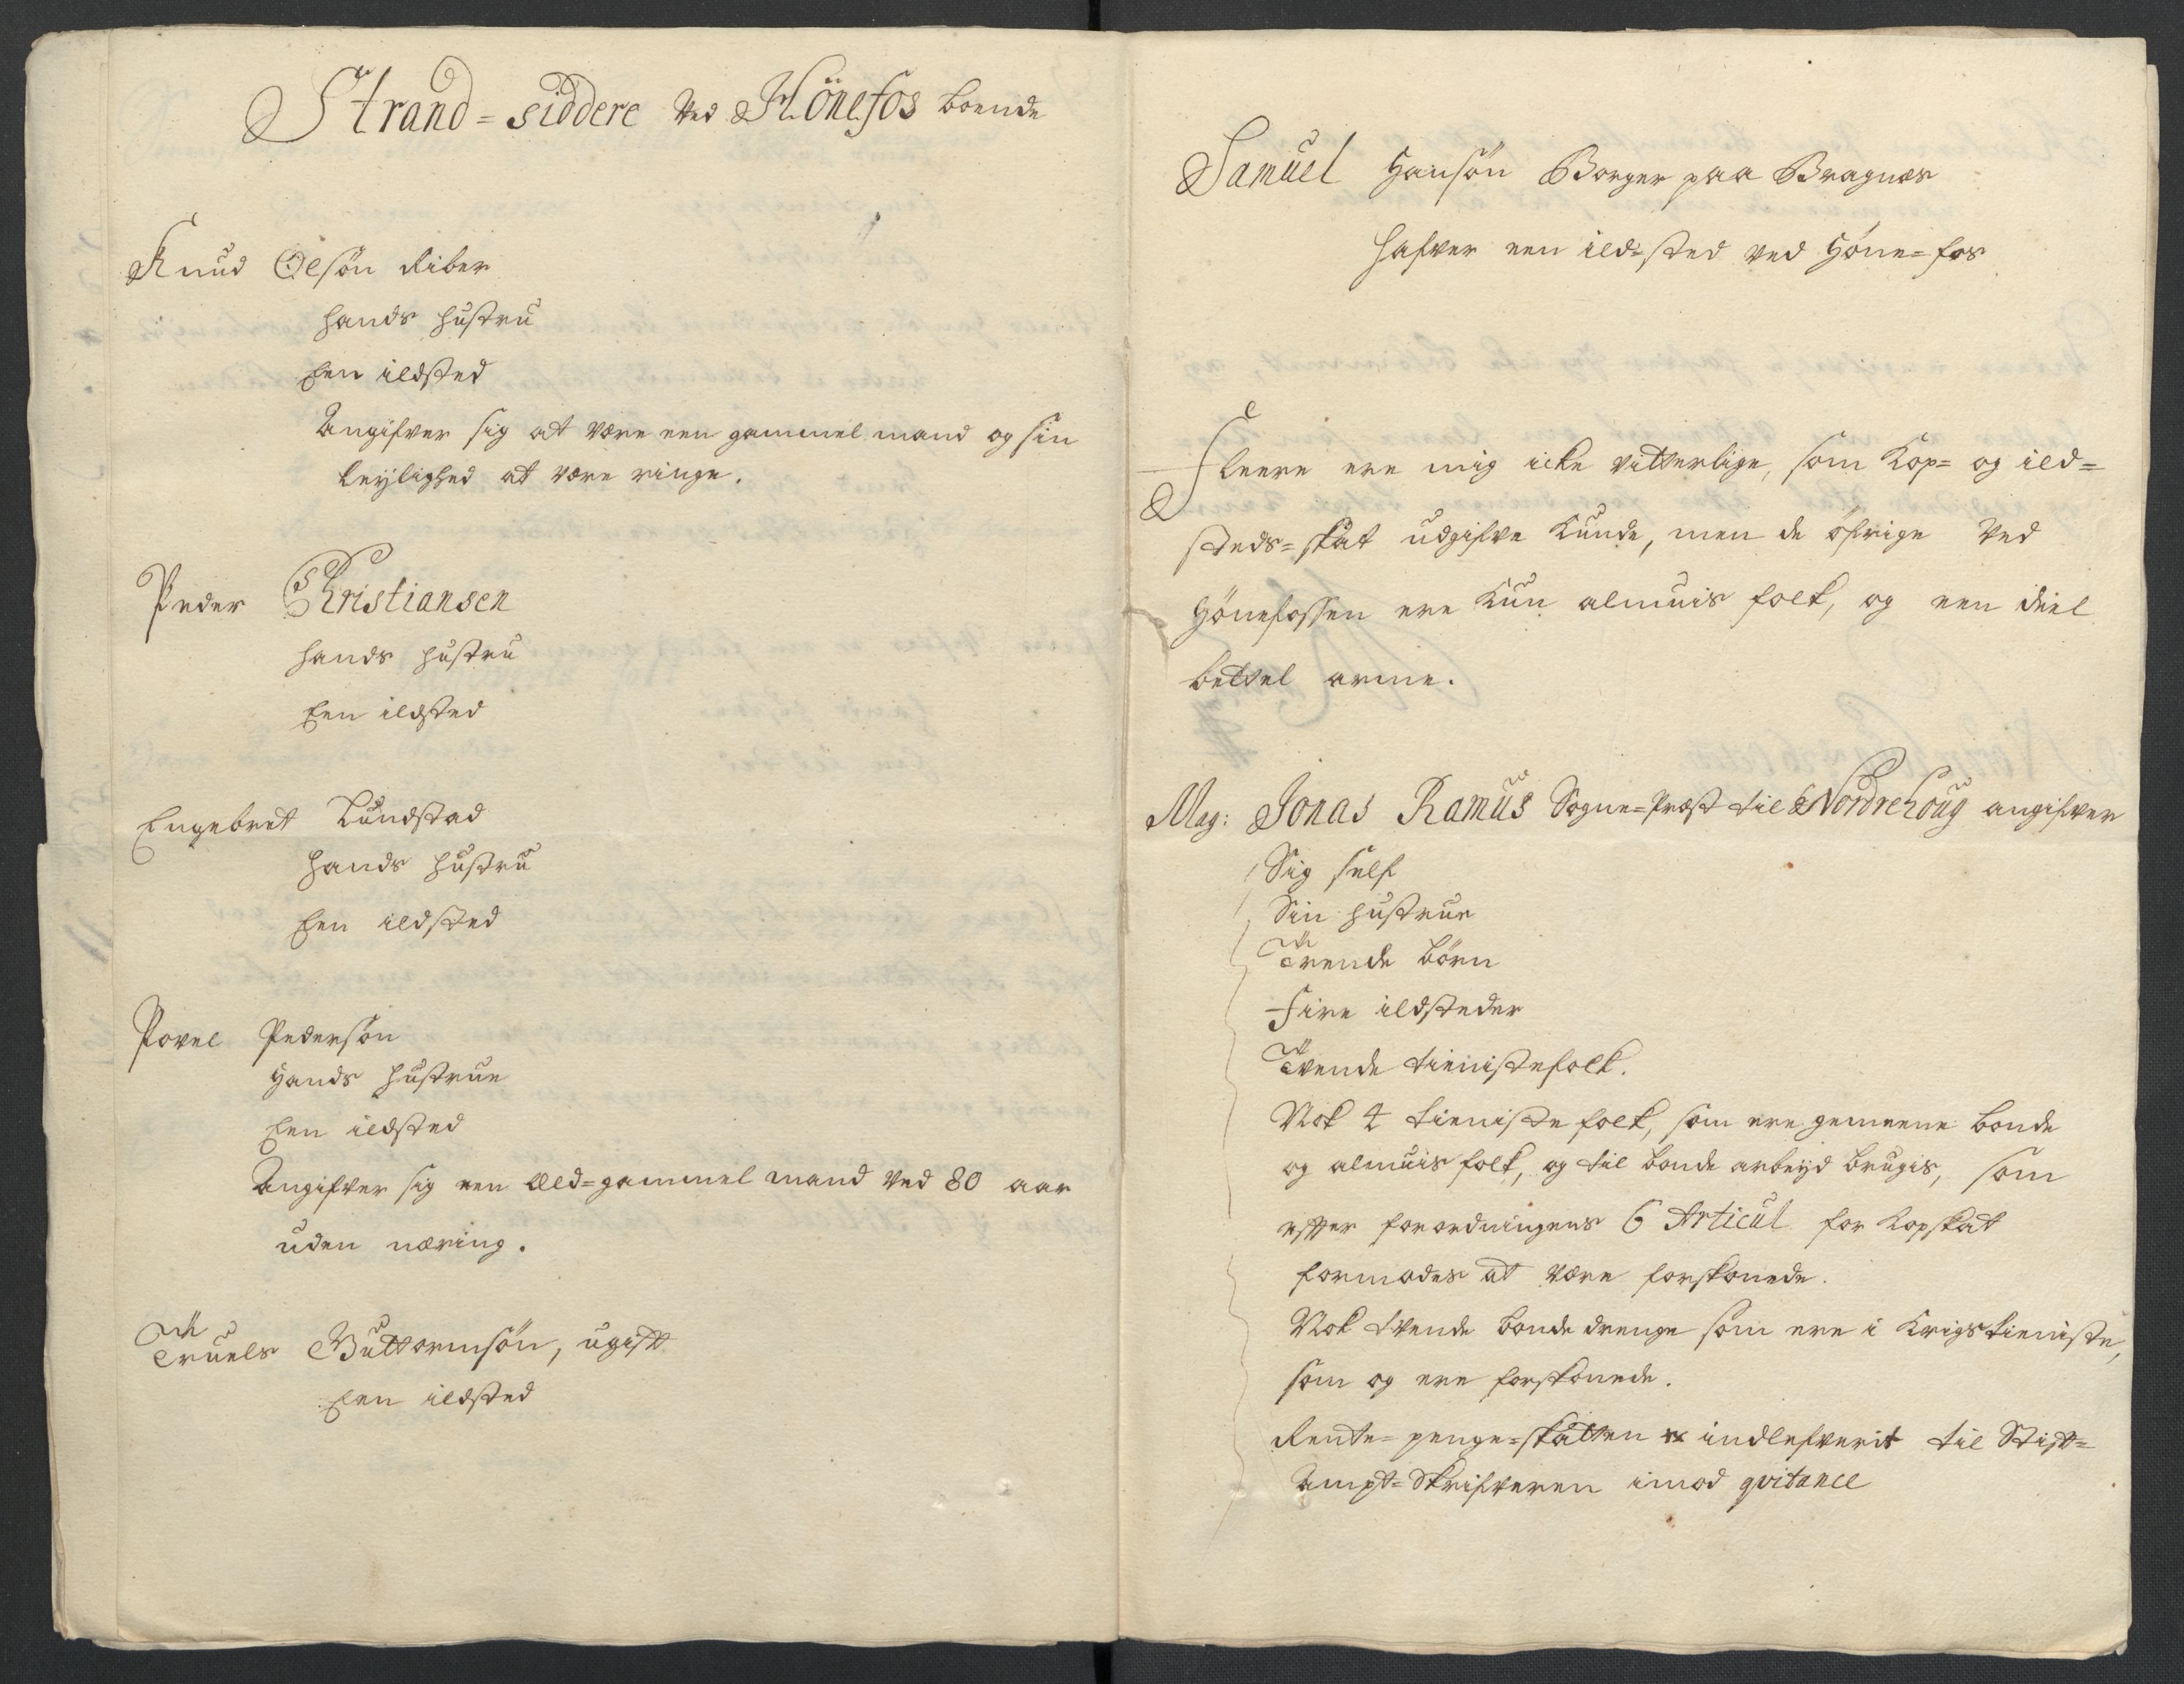 Strand=siddere ved Hönefos boende
Knud Olsön Riber
hands hustru
Een ildsted
Angifver sig at være een gammel mand og sin
leylighed at være ringe.
Peder Christiansen
hands hustru
Een ildsted
Engebret Lundstad
hands hustru
Een ildsted
Povel Pedersön
Hands hustrue
Een ildsted
Angifver sig een Æld=gammel mand ved 80 aar
uden næring.
Truels Guttormsön, ugift
Een ildsted
Samuel Hansön Borger paa Bragnæs
hafver een ild=sted ved Höne=fos
Fleere ere mig icke vitterlige, som Kop= og ild=
steds=skat udgifve kunde, men de öfrige ved
Hönefossen ere kun almuis folk, og een deel
bettel arme.
Mag: Jonas Ramus Sogne=Præst til Nordrehoug angifver
Sig self
Sin hustrue
Trende börn
Fire ildsteder
Tvende tienistefolk.
Nok 4 tieniste folk, som ere gemeene bonde
og almuis folk, og til bonde arbeyd brugis, som
efter forordningens 6 Articul for kopskat
formodes at være forskonede.
Nok tvende bonde drenge som ere i Krigstieniste,
som og ere forskonede.
Rente=penge=skatten er indlefverit til Stift=
Ampt=Skrifveren imod qvitance